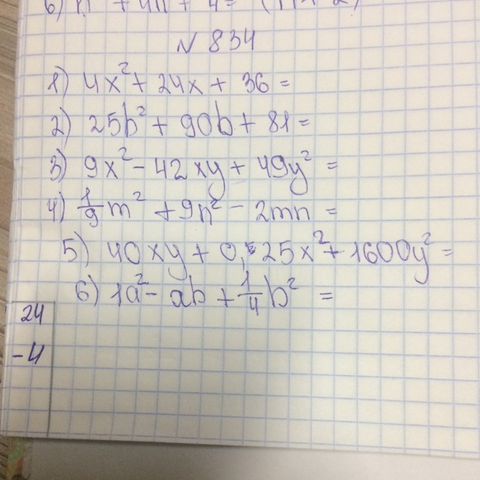 6) n² + 4n + 4 =
N 834
1) 4x² + 24x + 36 =
2) 25b² + 90b + 81 =
3) 9x² - 42xy + 49y² =
4) 1/9 m² + 9n² - 2mn =
5) 40xy + 0,25x² + 1600y² =
6) 1a² - ab + 1/4 b² =
24
-4